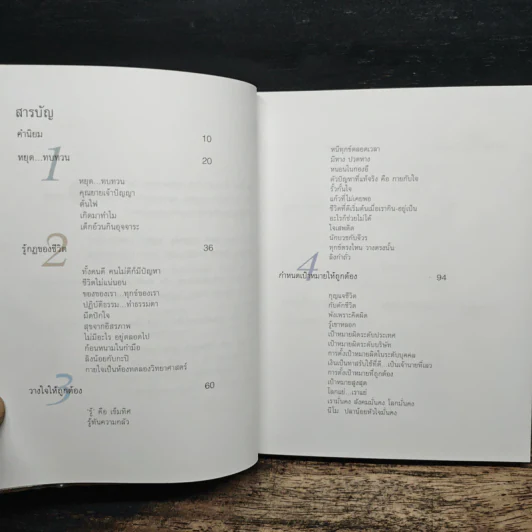 สารบัญ
คำนิยม 10
1
หยุด...ทบทวน 20
หยุด...ทบทวน
คุณยายเจ้าปัญญา
ต้นไผ่
เกิดมาทำไม
เด็กอ้วนกินอุจจาระ
2
รู้กฎของชีวิต 36
ทั้งคนดี คนไม่ดีก็มีปัญหา
ชีวิตไม่แน่นอน
ของของเรา...ทุกข์ของเรา
ปฏิบัติธรรม...ทำธรรมดา
มีดปักใจ
สุขจากอิสรภาพ
ไม่มีอะไร อยู่ตลอดไป
ก้อนหนามในกำมือ
ลิงน้อยกับกะปิ
กายใจเป็นห้องทดลองวิทยาศาสตร์
3
วางใจให้ถูกต้อง 60
"รู้" คือ เข็มทิศ
รู้ทันความกลัว
หนีทุกข์ตลอดเวลา
มีทาง ปวดทาง
หนอนในกองขี้
ตัวปัญหาที่แท้จริง คือ กายกับใจ
รั้วกั้นใจ
แก้วที่ไม่เคยพอ
ชีวิตที่ดีเริ่มต้นเมื่อเรากิน-อยู่เป็น
อะไรก็ช่วยไม่ได้
ใจเสพติด
นักบวชกับจีวร
ทุกข์ตรงไหน วางตรงนั้น
ลิงกำถั่ว
4
กำหนดเป้าหมายให้ถูกต้อง 94
กุญแจชีวิต
กับดักชีวิต
พังเพราะคิดผิด
รู้เขาหลอก
เป้าหมายผิดระดับประเทศ
เป้าหมายผิดระดับบริษัท
การตั้งเป้าหมายผิดในระดับบุคคล
เงินเป็นทาสรับใช้ที่ดี...เป็นเจ้านายที่เลว
การตั้งเป้าหมายที่ถูกต้อง
เป้าหมายสูงสุด
โลกแย่...เราแย่
เรามั่นคง สังคมมั่นคง โลกมั่นคง
นีโม ปลาน้อยหัวใจมั่นคง